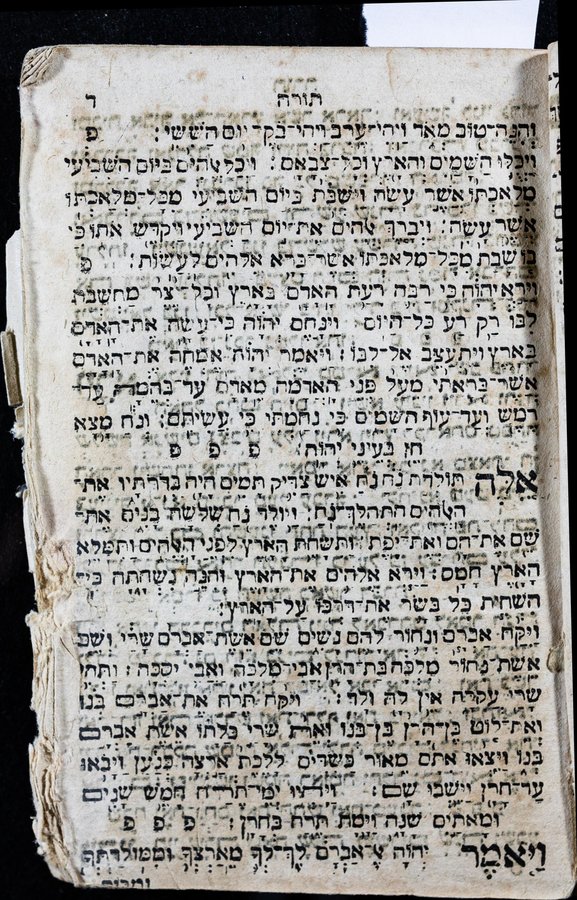 תורה ד
והנה־טוב מאד ויהי־ערב ויהי־בקר יום הששי׃ פ
ויכלו השמים והארץ וכל־צבאם׃ ויכל אלהים ביום השביעי
מלאכתו אשר עשה וישבת ביום השביעי מכל־מלאכתו
אשר עשה׃ ויברך אלהים את־יום השביעי ויקדש אתו כי
בו שבת מכל־מלאכתו אשר־ברא אלהים לעשות׃ פ
וירא יהוה כי רבה רעת האדם בארץ וכל־יצר מחשבת
לבו רק רע כל־היום׃ וינחם יהוה כי־עשה את־האדם
בארץ ויתעצב אל־לבו׃ ויאמר יהוה אמחה את־האדם
אשר־בראתי מעל פני האדמה מאדם עד־בהמה עד־
רמש ועד־עוף השמים כי נחמתי כי עשיתם׃ ונח מצא
חן בעיני יהוה׃ פ פ פ
אלה תולדת נח נח איש צדיק תמים היה בדרתיו את־
האלהים התהלך־נח׃ ויולד נח שלשה בנים את־
שם את־חם ואת־יפת׃ ותשחת הארץ לפני האלהים ותמלא
הארץ חמס׃ וירא אלהים את־הארץ והנה נשחתה כי־
השחית כל בשר את־דרכו על־הארץ׃
ויקח אברם ונחור להם נשים שם אשת־אברם שרי ושם
אשת־נחור מלכה בת־הרן אבי־מלכה ואבי יסכה׃ ותהי
שרי עקרה אין לה ולד׃ ויקח תרח את־אברם בנו
ואת־לוט בן־הרן בן־בנו ואת שרי כלתו אשת אברם
בנו ויצאו אתם מאור כשדים ללכת ארצה כנען ויבאו
עד־חרן וישבו שם׃ ויהיו ימי־תרח חמש שנים
ומאתים שנה וימת תרח בחרן׃ פ פ פ
ויאמר יהוה אל־אברם לך־לך מארצך וממולדתך